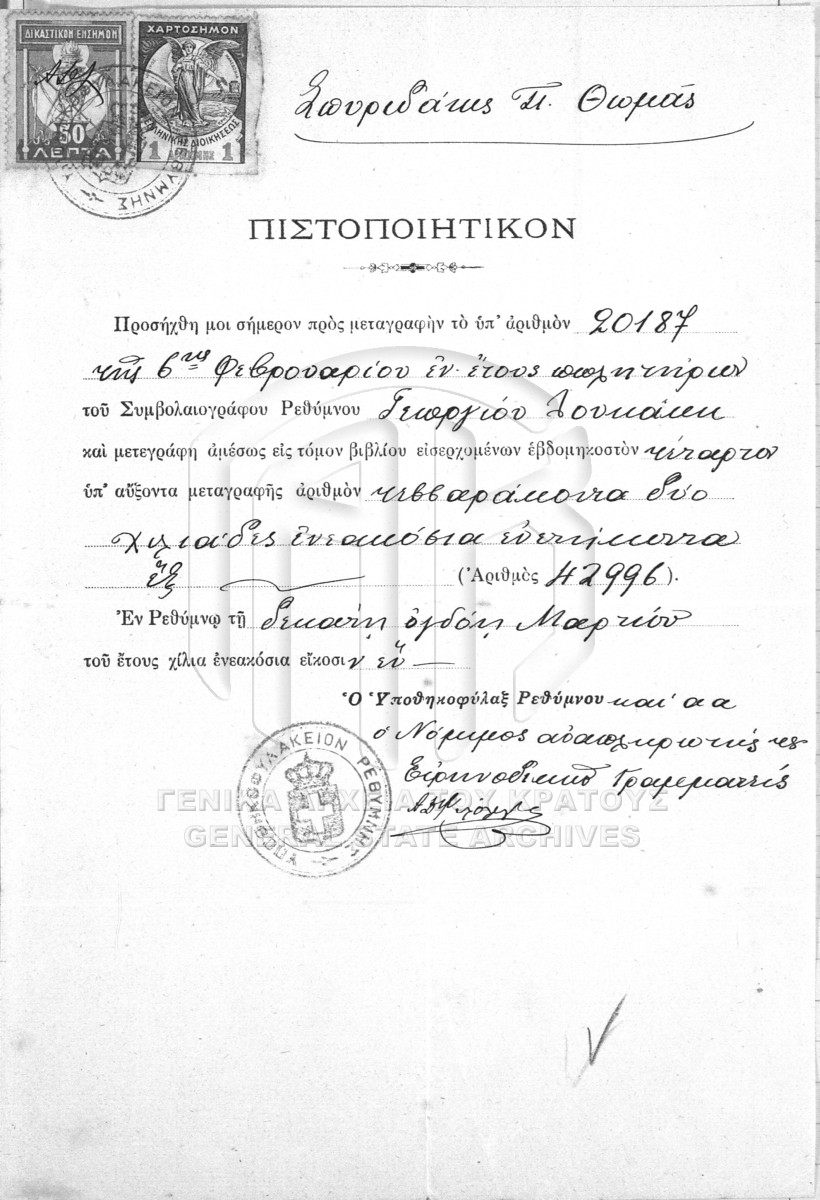 ΔΙΚΑΣΤΙΚΟΝ ΕΝΣΗΜΟΝ
50
ΛΕΠΤΑ
ΧΑΡΤΟΣΗΜΟΝ
ΕΛΛΗΝΙΚΗΣ ΔΙΟΙΚΗΣΕΩΣ
1 ΔΡΑΧΜΗΣ 1
Σπυριδάκης Π. Θωμάς
ΠΙΣΤΟΠΟΙΗΤΙΚΟΝ
Προσήχθη μοι σήμερον πρὸς μεταγραφὴν τὸ ὑπ' ἀριθμὸν 20187
τῆς 6ης Φεβρουαρίου ἐν. ἔτους πωλητήριον
τοῦ Συμβολαιογράφου Ρεθύμνου Γεωργίου
καὶ μετεγράφη ἀμέσως εἰς τόμον βιβλίου εἰσερχομένων ἑβδομηκοστὸν τέταρτον
ὑπ' αὔξοντα μεταγραφῆς ἀριθμὸν τεσσαράκοντα δύο
χιλιάδες ἐνεακόσια ἐνενήκοντα
ἓξ (Ἀριθμὸς 42996).
Ἐν Ρεθύμνῳ τῇ δεκάτῃ ὀγδόῃ Μαρτίου
τοῦ ἔτους χίλια ἐνεακόσια εἴκοσιν ἕν
Ὁ Ὑποθηκοφύλαξ Ρεθύμνου και αα
ὁ Νόμιμος ἀναπληρωτής της
Εἰρηνοδικείου Γραμματεύς
ΥΠΟΘΗΚΟΦΥΛΑΚΕΙΟΝ ΡΕΘΥΜΝΗΣ
ΓΕΝΙΚΑ ΑΡΧΕΙΑ ΤΟΥ ΚΡΑΤΟΥΣ
GENERAL STATE ARCHIVES